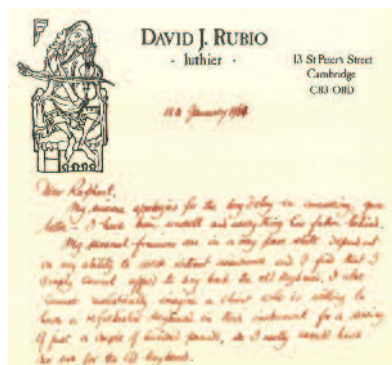 DAVID J. RUBIO
· luthier ·
13 St Peter's Street
Cambridge
CB3 0BD
18th January
Dear
My sincere apologies for the long delay in answering your
letter – I have been unwell and everything has fallen behind.
My personal finances are in a very poor state dependent
on my ability to work without and I find that I
simply cannot afford to buy back the old keyboard. I also
cannot imagine a client who is willing to
have a keyboard in their instrument for a saving
of just a couple of hundred pounds, so I really would have
no use for the old keyboard.